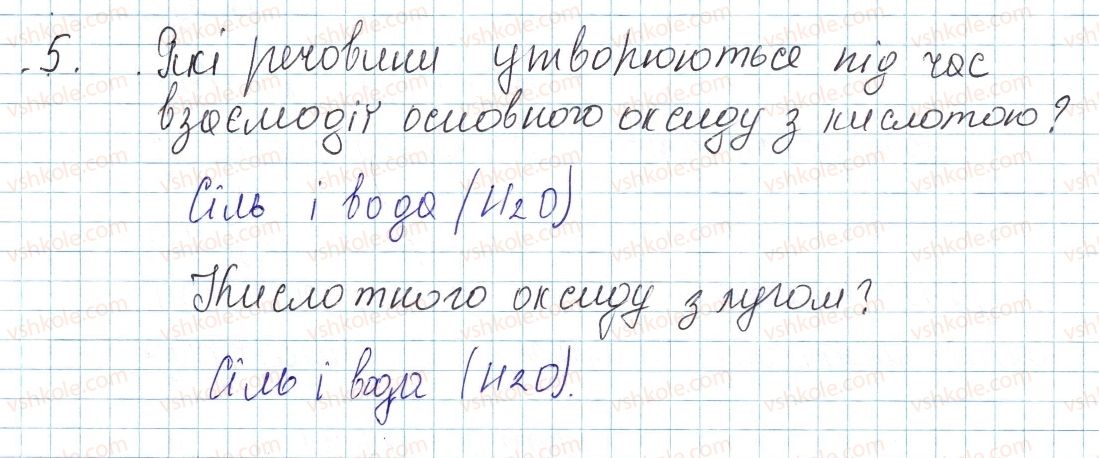 5. Які речовини утворюються під час
взаємодії основного оксиду з кислотою?
Сіль і вода (H2O)
Кислотного оксиду з лугом?
Сіль і вода (H2O).